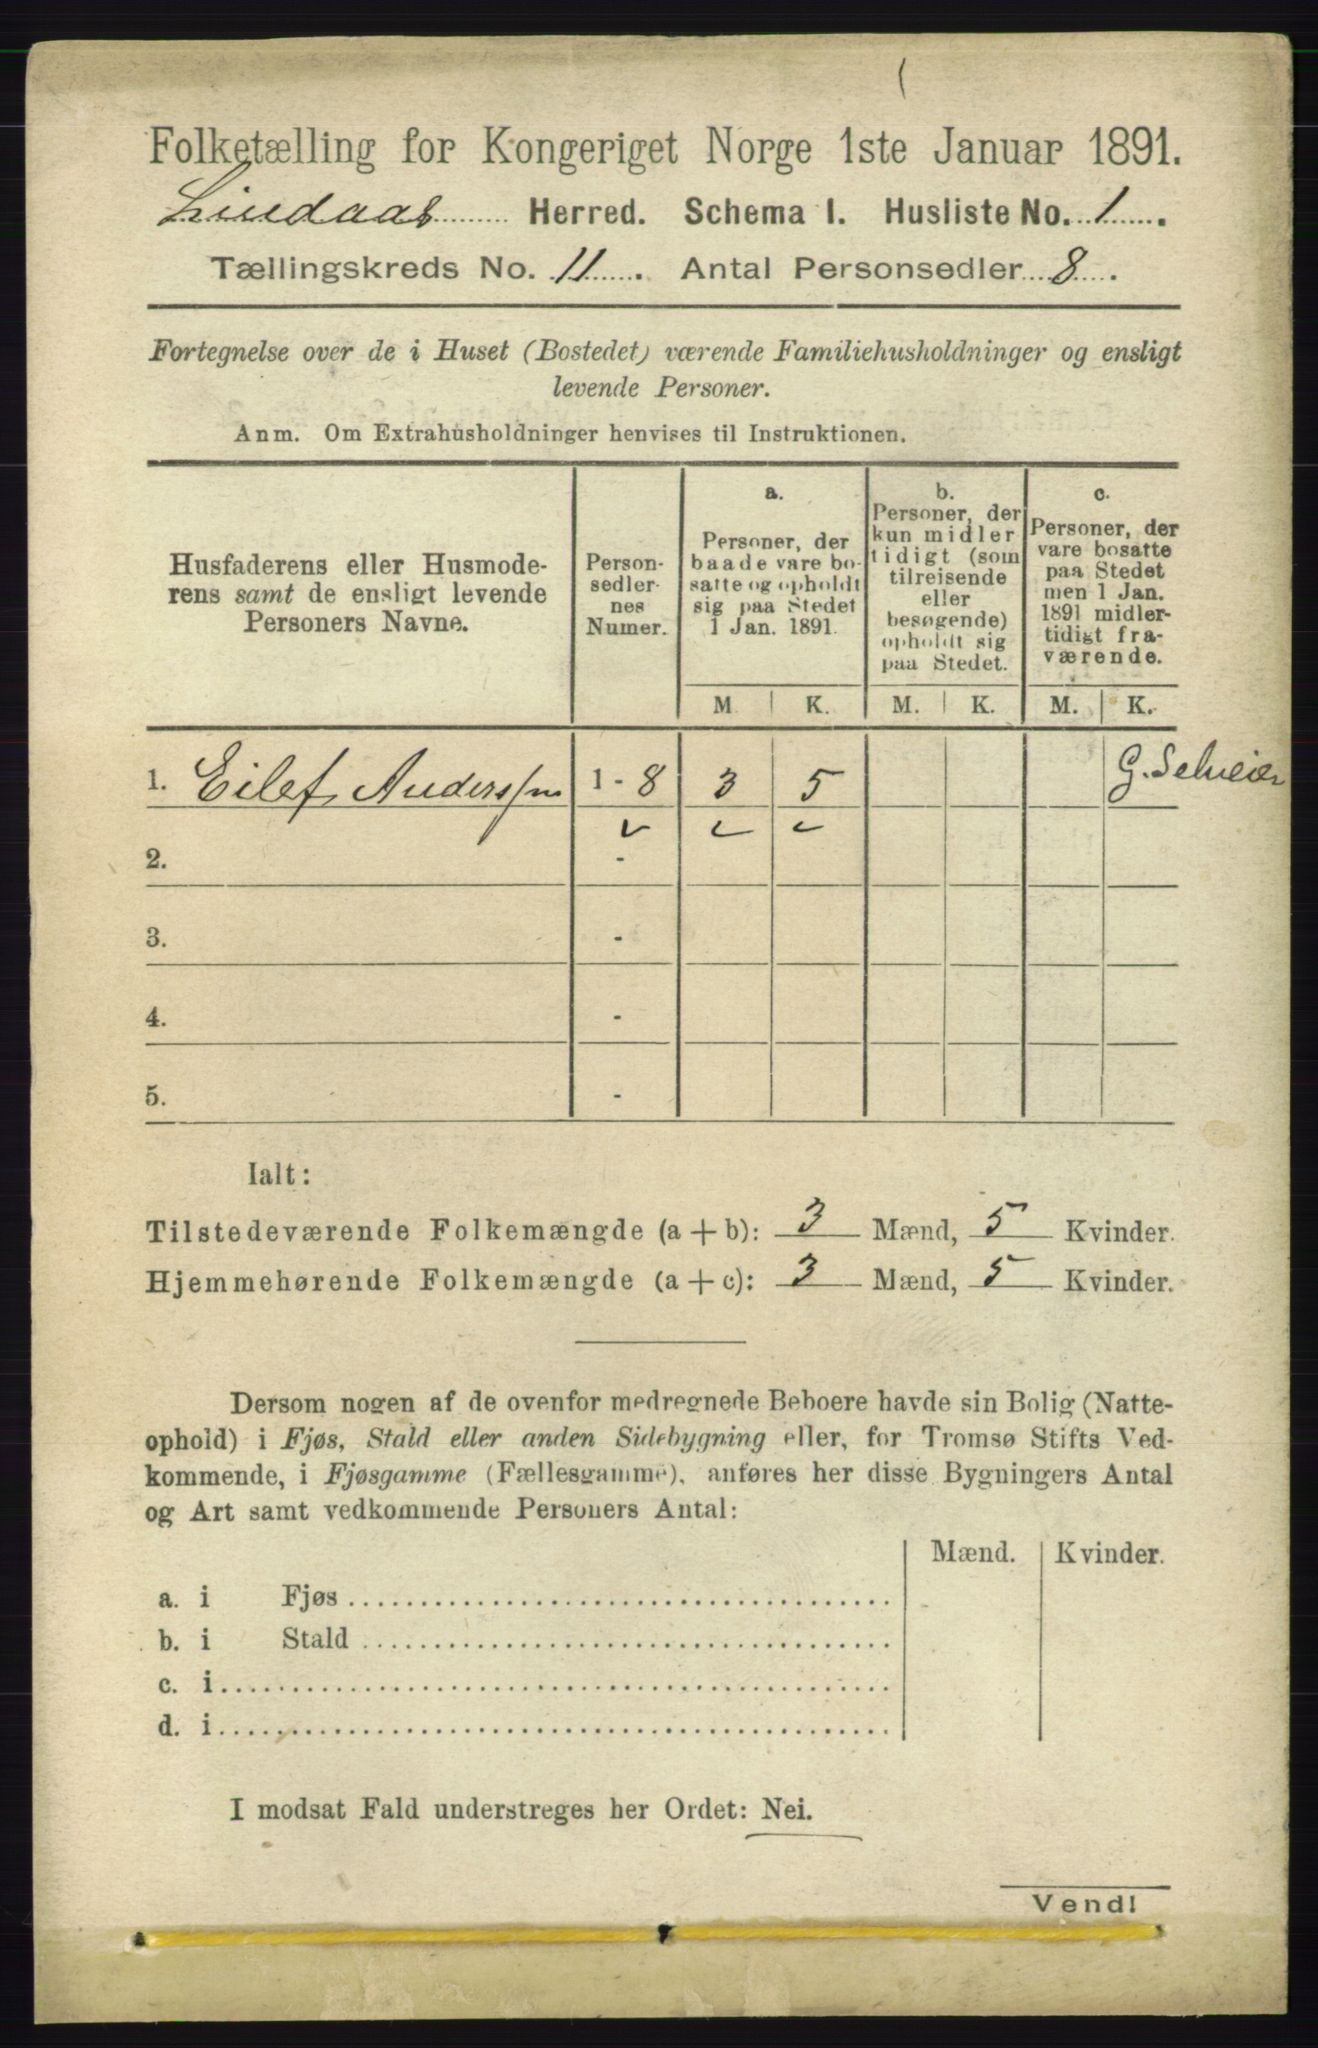 Folketælling for Kongeriget Norge 1ste Januar 1891.
Lindaas Herred. Schema I. Husliste No. 1.
Tællingskreds No. 11. Antal Personsedler 8.
Fortegnelse over de i Huset (Bostedet) værende Familiehusholdninger og ensligt
levende Personer.
Anm. Om Extrahusholdninger henvises til Instruktionen.
Husfaderens eller Husmode-
rens samt de ensligt levende
Personers Navne.
Person-
sedler-
nes
Numer.
a.
Personer, der
baade vare bo-
satte og opholdt
sig paa Stedet
1 Jan. 1891.
b.
Personer, der
kun midler
tidigt (som
tilreisende
eller
besøgende)
opholdt sig
paa Stedet.
c.
Personer, der
vare bosatte
paa Stedet
men 1 Jan.
1891 midler-
tidigt fra-
værende.
M. K. M. K. M. K.
1. Eilef Anderssen 1 - 8 3 5 G. Selveier
2. -
3. -
4. -
5. -
Ialt:
Tilstedeværende Folkemængde (a + b): 3 Mænd, 5 Kvinder.
Hjemmehørende Folkemængde (a + c): 3 Mænd, 5 Kvinder.
Dersom nogen af de ovenfor medregnede Beboere havde sin Bolig (Natte-
ophold) i Fjøs, Stald eller anden Sidebygning eller, for Tromsø Stifts Ved-
kommende, i Fjøsgamme (Fællesgamme), anføres her disse Bygningers Antal
og Art samt vedkommende Personers Antal:
Mænd. Kvinder.
a. i Fjøs
b. i Stald
c. i
d. i
I modsat Fald understreges her Ordet: Nei.
Vend!